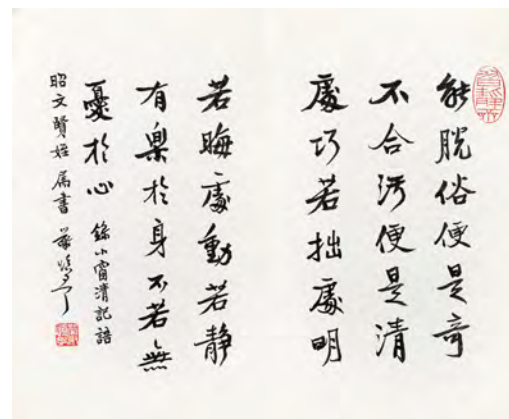 能脫俗便是奇
不合污便是清
處巧若拙處明
若晦處動若靜
有樂於身不若無
憂於心 錄小窗清記語
昭文賢姪屬書